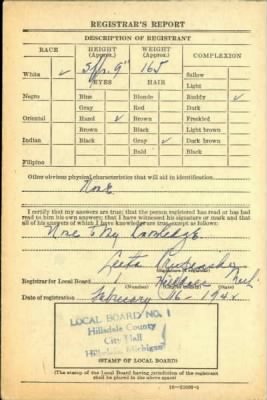 REGISTRAR'S REPORT
DESCRIPTION OF REGISTRANT
RACE HEIGHT (Approx.) WEIGHT (Approx.) COMPLEXION
5 ft. 9" 165
White ✓ EYES HAIR Sallow
Light
Negro Blue Blonde Ruddy ✓
Gray Red Dark
Oriental Hazel ✓ Brown Freckled
Brown Black Light brown
Indian Black Gray ✓ Dark brown
Bald Black
Filipino
Other obvious physical characteristics that will aid in identification
None
I certify that my answers are true; that the person registered has read or has had
read to him his own answers; that I have witnessed his signature or mark and that
all of his answers of which I have knowledge are true, except as follows:
None to My Knowledge.
Registrar for Local Board 1 Hillsdale Mich.
Date of registration February 16 - 1942
LOCAL BOARD NO. 1
Hillsdale County
City Hall
Hillsdale, Michigan
(STAMP OF LOCAL BOARD)
(The stamp of the Local Board having jurisdiction of the registrant
shall be placed in the above space)